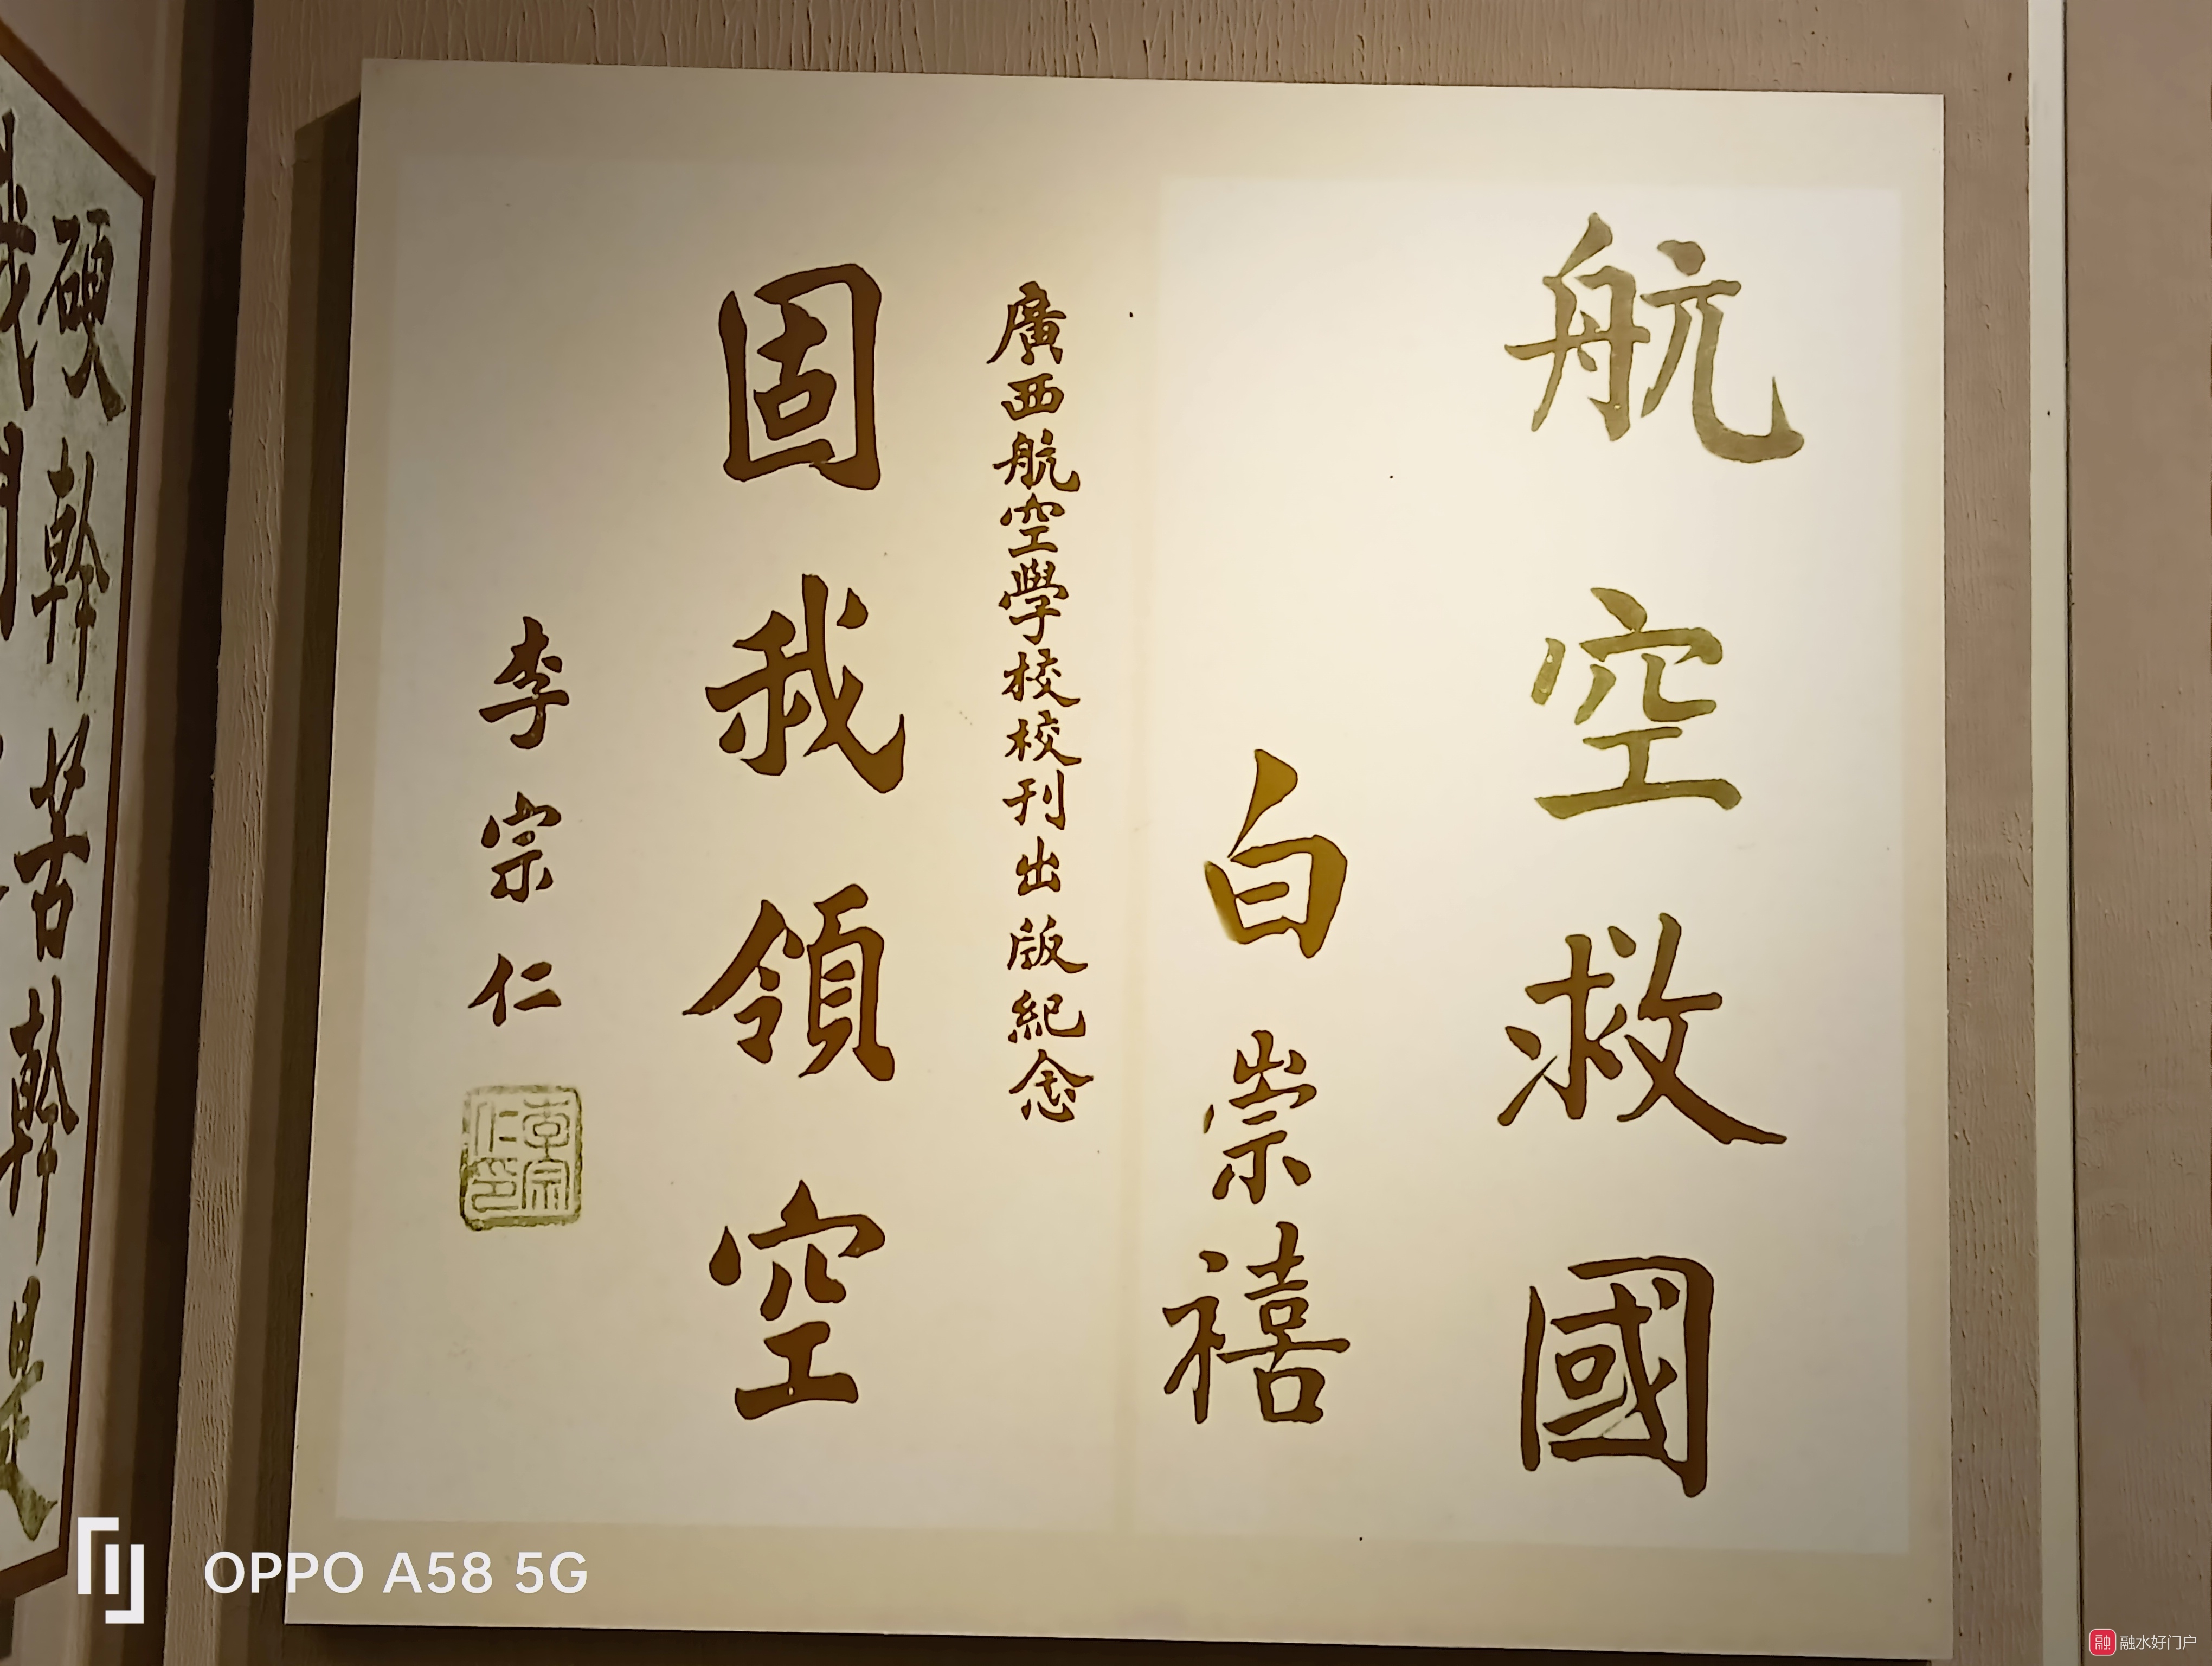 航空救國
白崇禧
廣西航空學校校刊出版紀念
固我領空
李宗仁
李宗仁印
硬幹苦幹是
我們
OPPO A58 5G
融水好门户